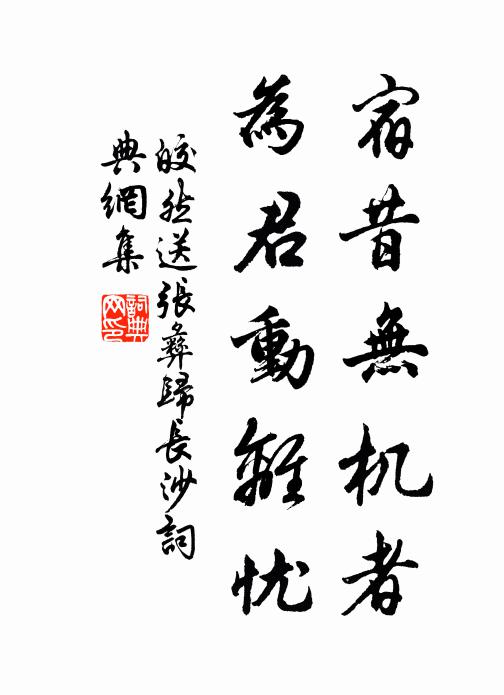 宿昔無机者
為君動離忧
皎然送張彝歸長沙詞
典網集
詞典网印